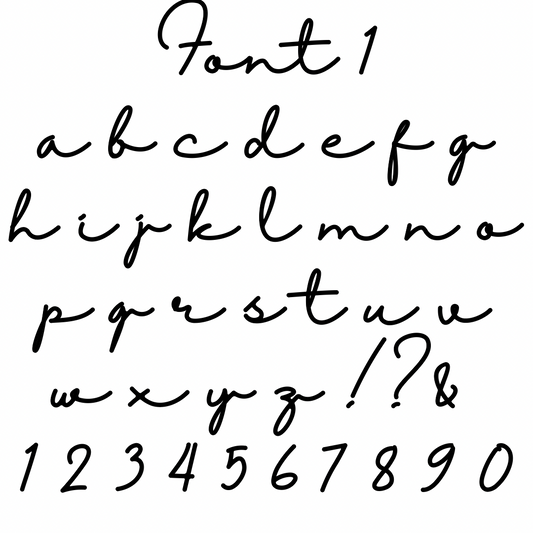 Font 1
a b c d e f g
h i j k l m n o
p q r s t u v
w x y z ! ? &
1 2 3 4 5 6 7 8 9 0